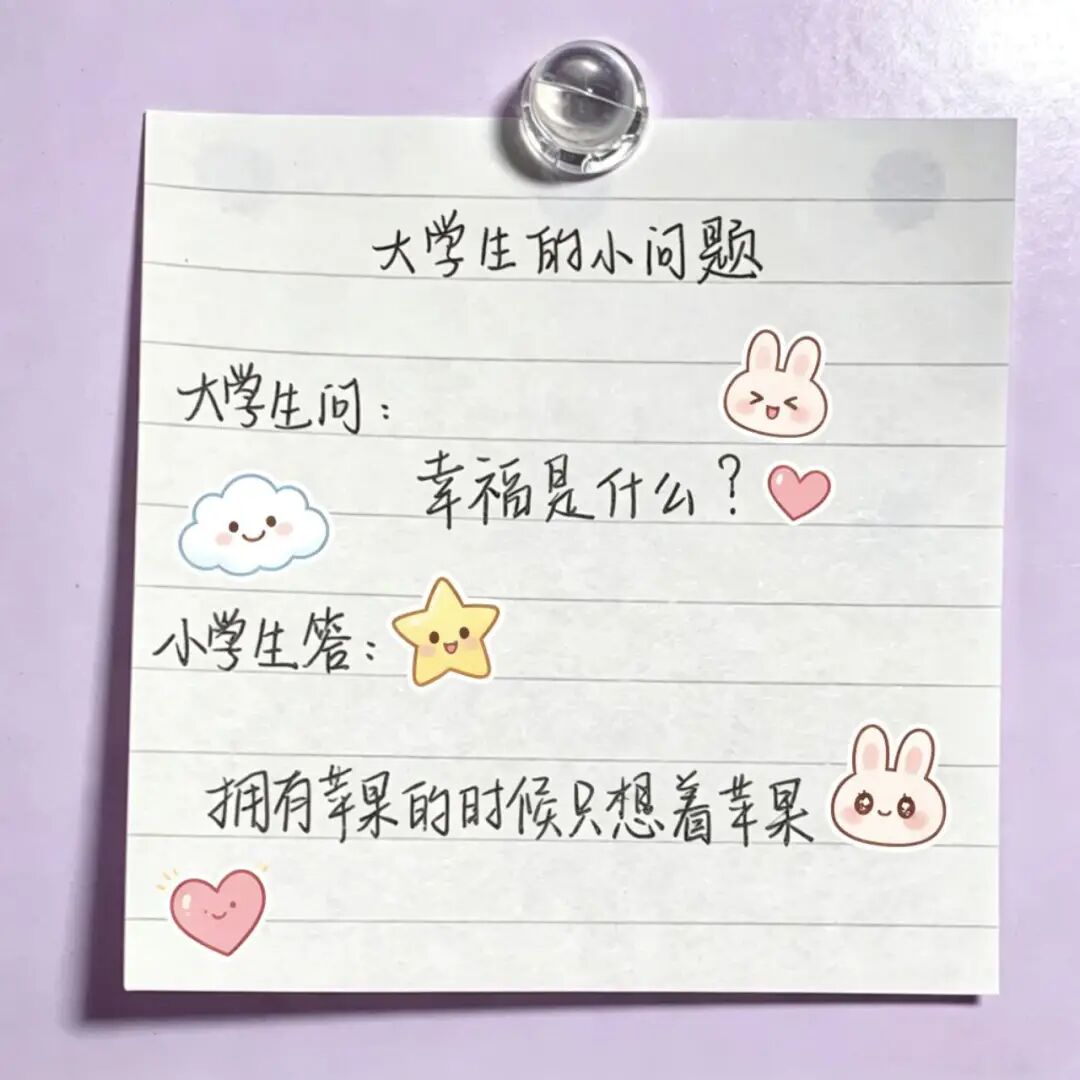 大学生的小问题
大学生问：
幸福是什么？
小学生答：
拥有苹果的时候只想着苹果